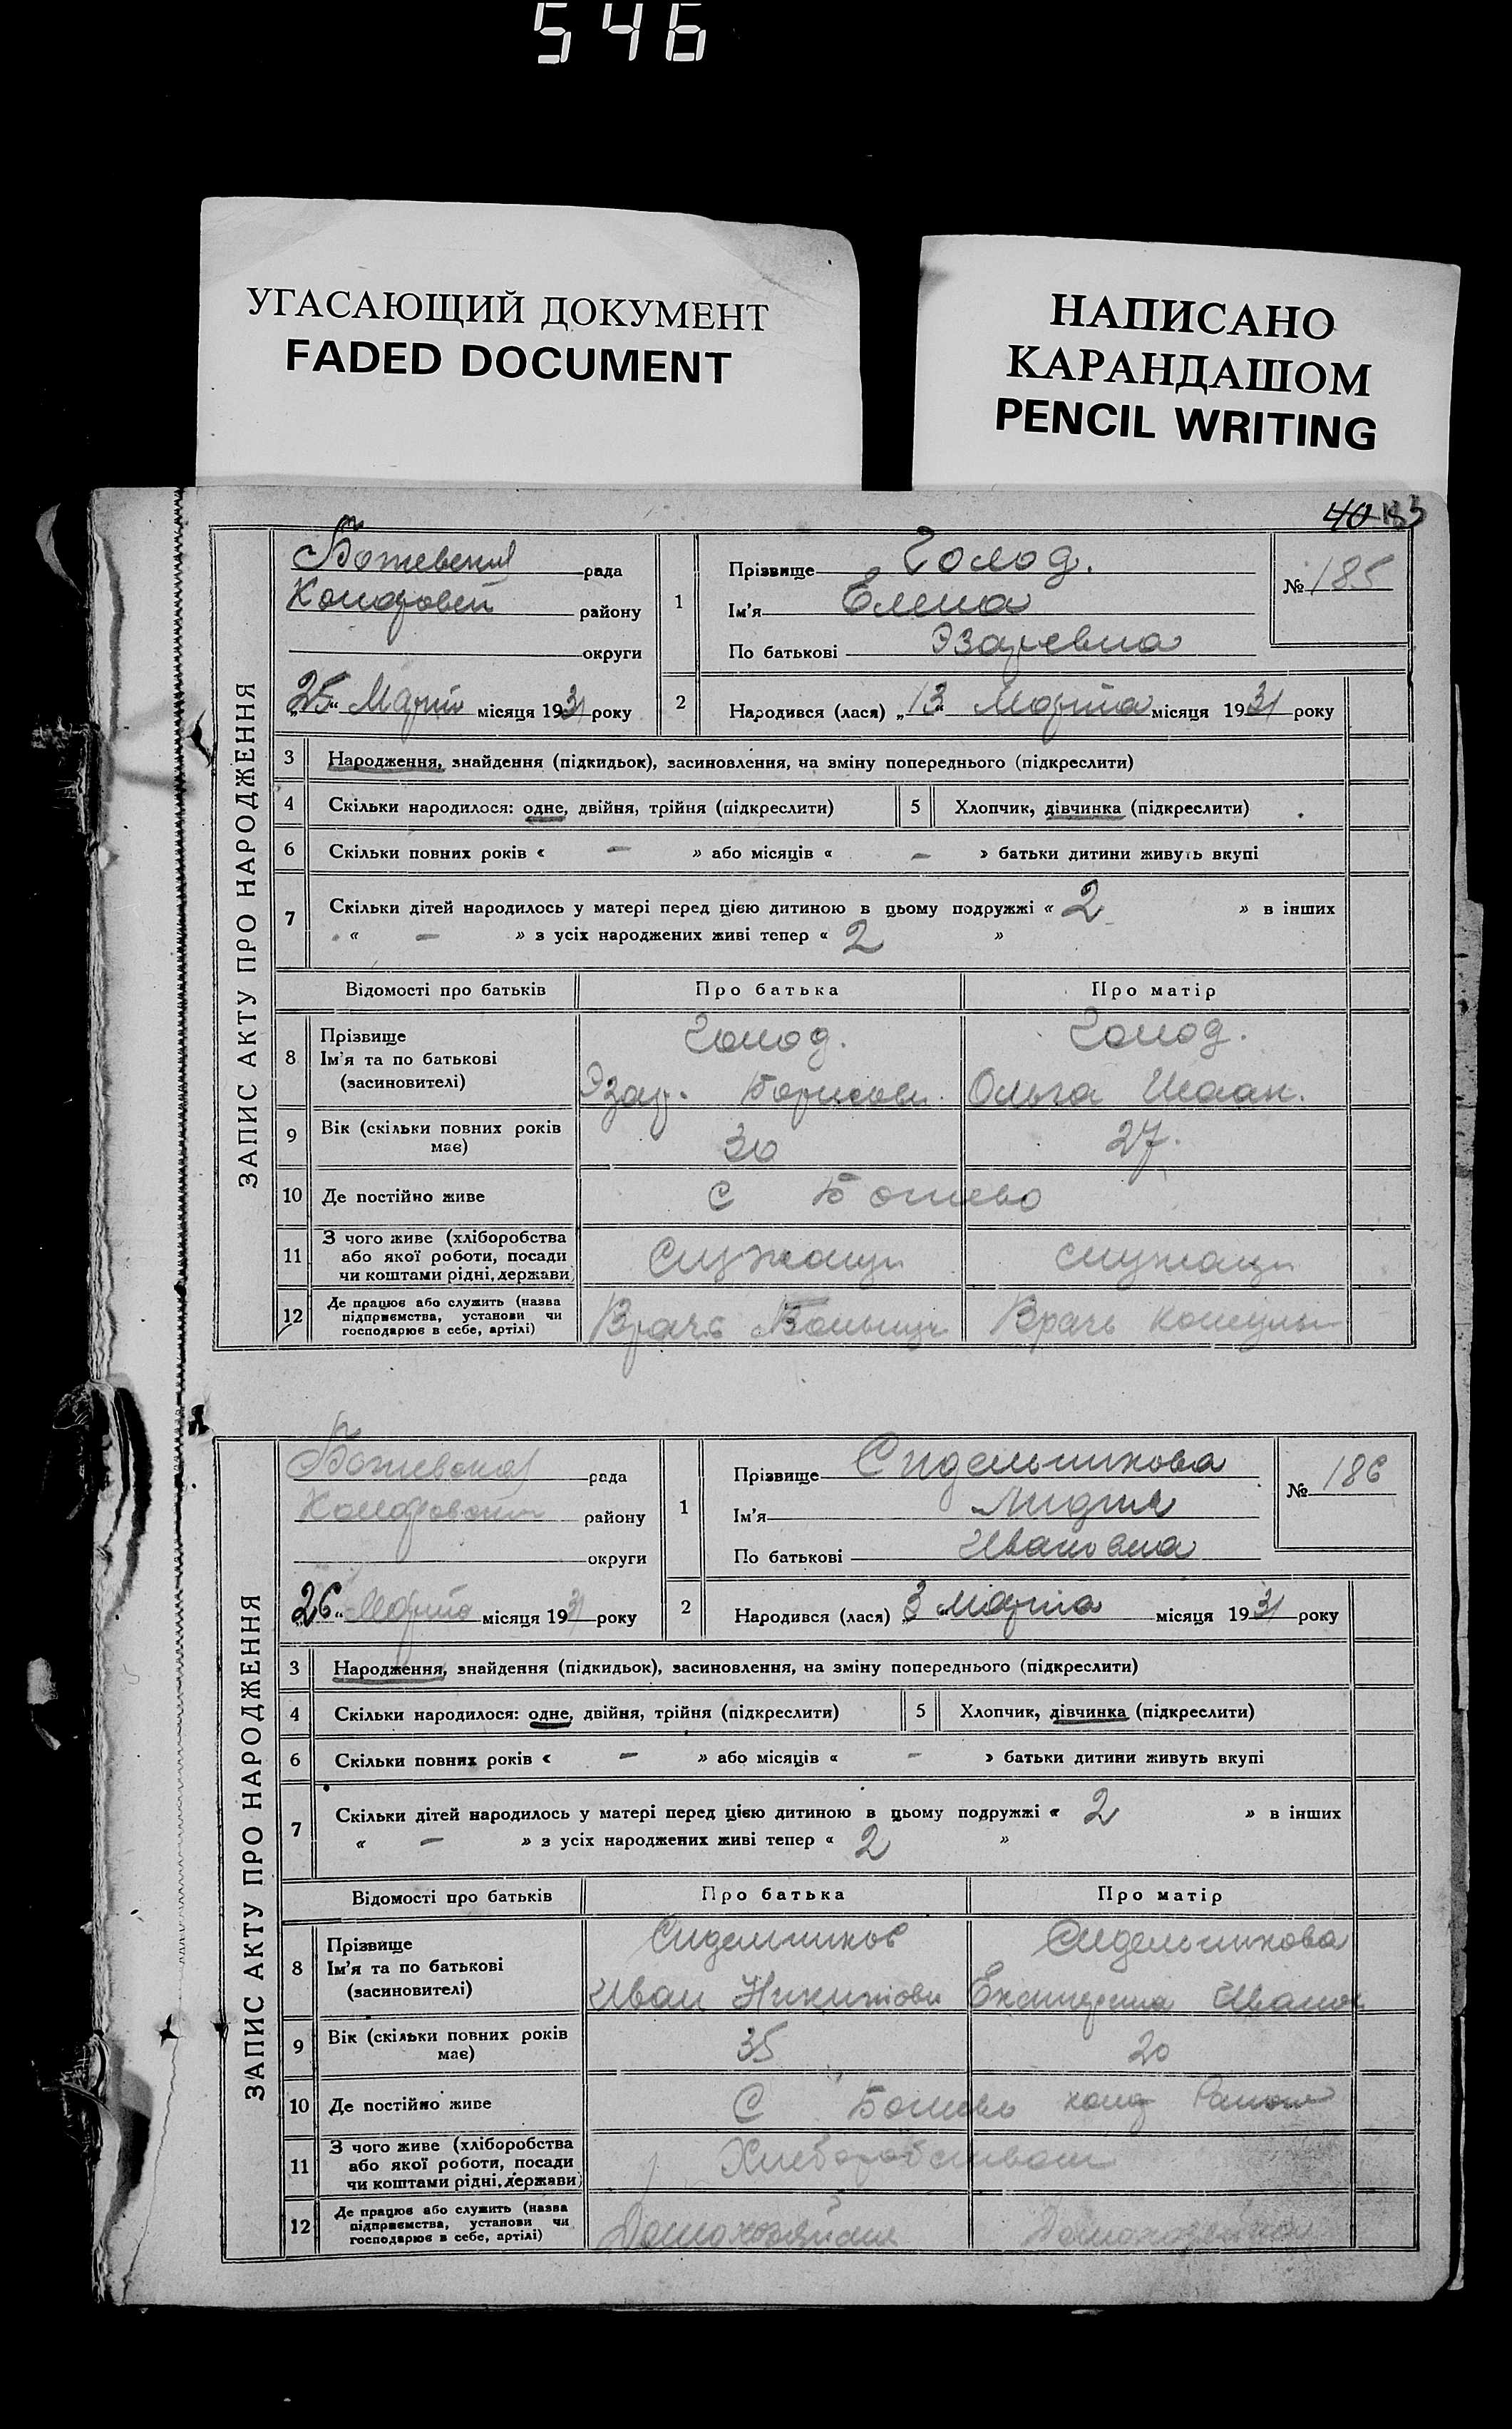 546
УГАСАЮЩИЙ ДОКУМЕНТ
FADED DOCUMENT
НАПИСАНО
КАРАНДАШОМ
PENCIL WRITING
40 183
ЗАПИС АКТУ ПРО НАРОДЖЕННЯ
рада
району
округи
„25“ Март місяця 1931 року
1 Прізвище Голод.
Ім'я Елена
По батькові Эзаревна
№ 185
2 Народився (лася) „13“ Марта місяця 1931 року
3 Народження, знайдення (підкидьок), засиновлення, на зміну попереднього (підкреслити)
4 Скільки народилося: одне, двійня, трійня (підкреслити) 5 Хлопчик, дівчинка (підкреслити)
6 Скільки повних років « — » або місяців « — » батьки дитини живуть вкупі
7 Скільки дітей народилось у матері перед цією дитиною в цьому подружжі « 2 » в інших
« — » з усіх народжених живі тепер « 2 »
Відомості про батьків Про батька Про матір
8 Прізвище Голод. Голод.
Ім'я та по батькові
(засиновителі) Эзар. Борисов. Ольга Исаак.
9 Вік (скільки повних років має) 30 27.
10 Де постійно живе С Божево
11 З чого живе (хліборобства
або якої роботи, посади
чи коштами рідні, держави) Служащи служащи
12 Де працює або служить (назва
підприємства, установи чи
господарює в себе, артілі) Врачь Врачь
ЗАПИС АКТУ ПРО НАРОДЖЕННЯ
рада
району
округи
„26“ Марта місяця 1931 року
1 Прізвище Сидельникова
Ім'я Лидия
По батькові Ивановна
№ 186
2 Народився (лася) „3“ Марта місяця 1931 року
3 Народження, знайдення (підкидьок), засиновлення, на зміну попереднього (підкреслити)
4 Скільки народилося: одне, двійня, трійня (підкреслити) 5 Хлопчик, дівчинка (підкреслити)
6 Скільки повних років « — » або місяців « — » батьки дитини живуть вкупі
7 Скільки дітей народилось у матері перед цією дитиною в цьому подружжі « 2 » в інших
« — » з усіх народжених живі тепер « 2 »
Відомості про батьків Про батька Про матір
8 Прізвище Сидельников Сидельникова
Ім'я та по батькові
(засиновителі) Иван Никитови Екатерина Иванов
9 Вік (скільки повних років має) 35 20
10 Де постійно живе С Божево
11 З чого живе (хліборобства
або якої роботи, посади
чи коштами рідні, держави)
12 Де працює або служить (назва
підприємства, установи чи
господарює в себе, артілі)